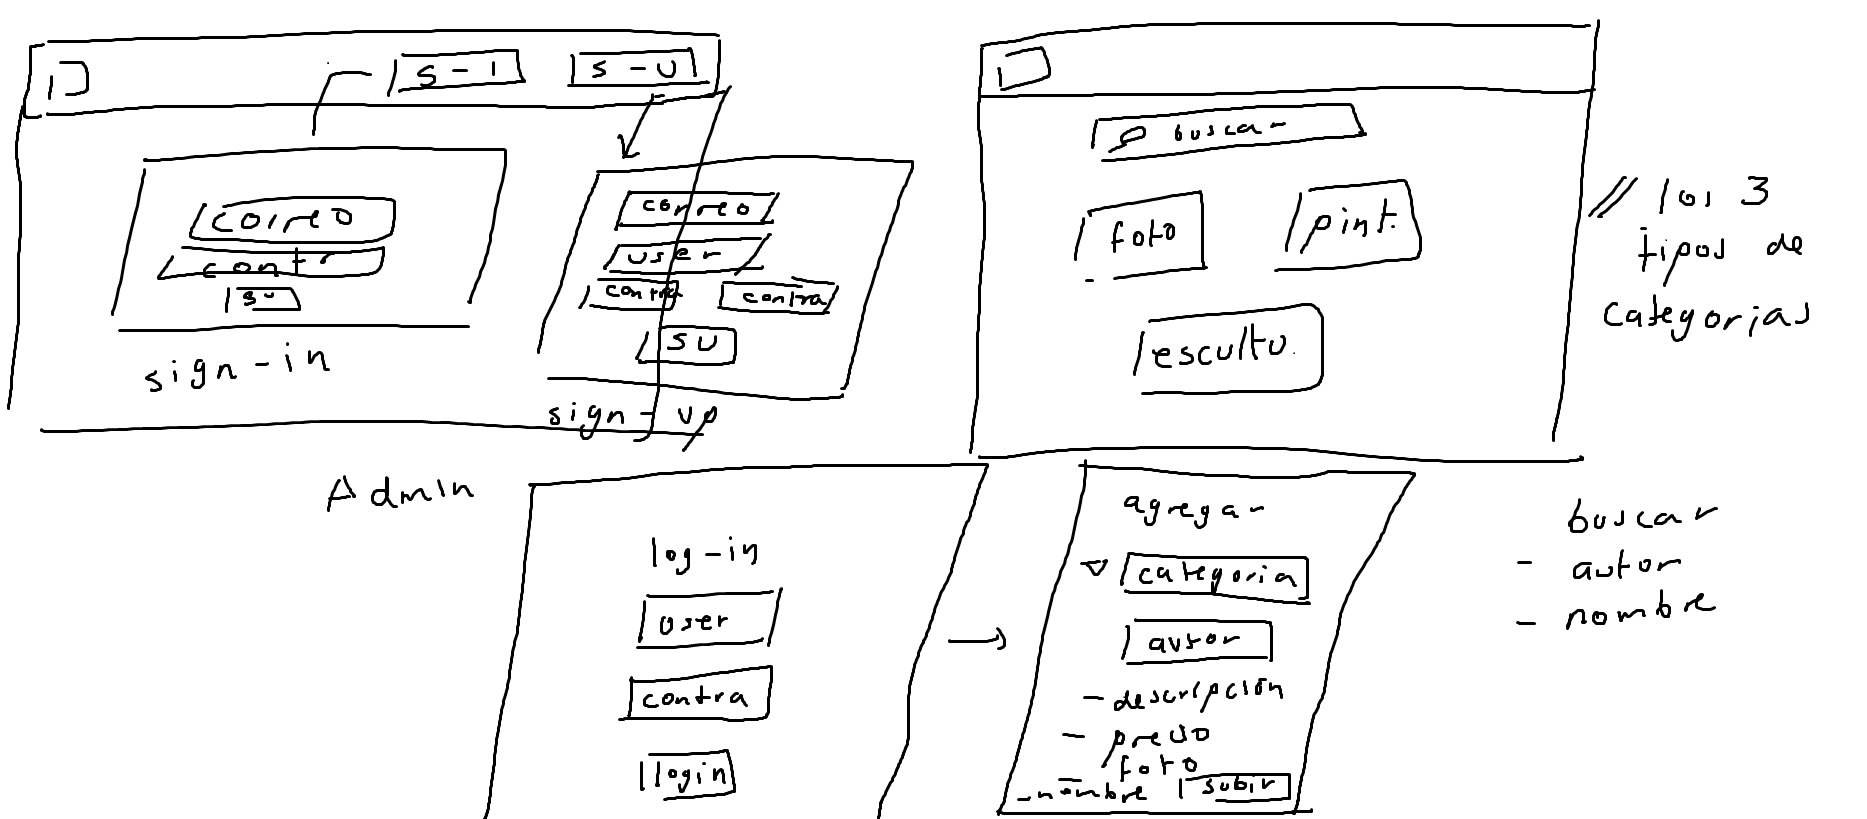 S-I
S-U
correo
contr
su
sign-in
correo
user
contra
contra
SU
sign-up
buscar
foto
pint.
escultu.
// los 3
tipos de
categorias
Admin
log-in
user
contra
login
agregar
categoria
autor
- descripción
- precio
- foto
- nombre
subir
buscar
- autor
- nombre